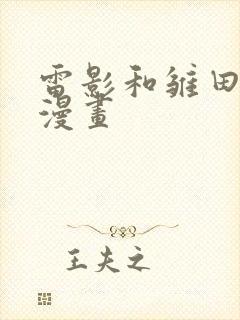 雷影和雏田
漫畫
王夫之